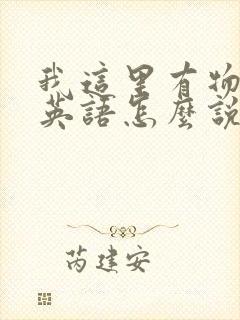 我這里有物
英語怎麼說
芮建安